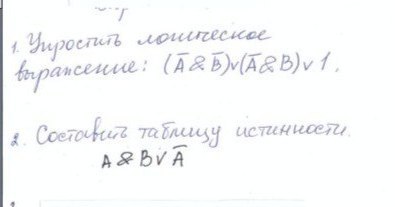 1. Упростить логическое
выражение: (Ā&B̄)v(Ā&B)v1.
2. Составить таблицу истинности.
A&BVĀ